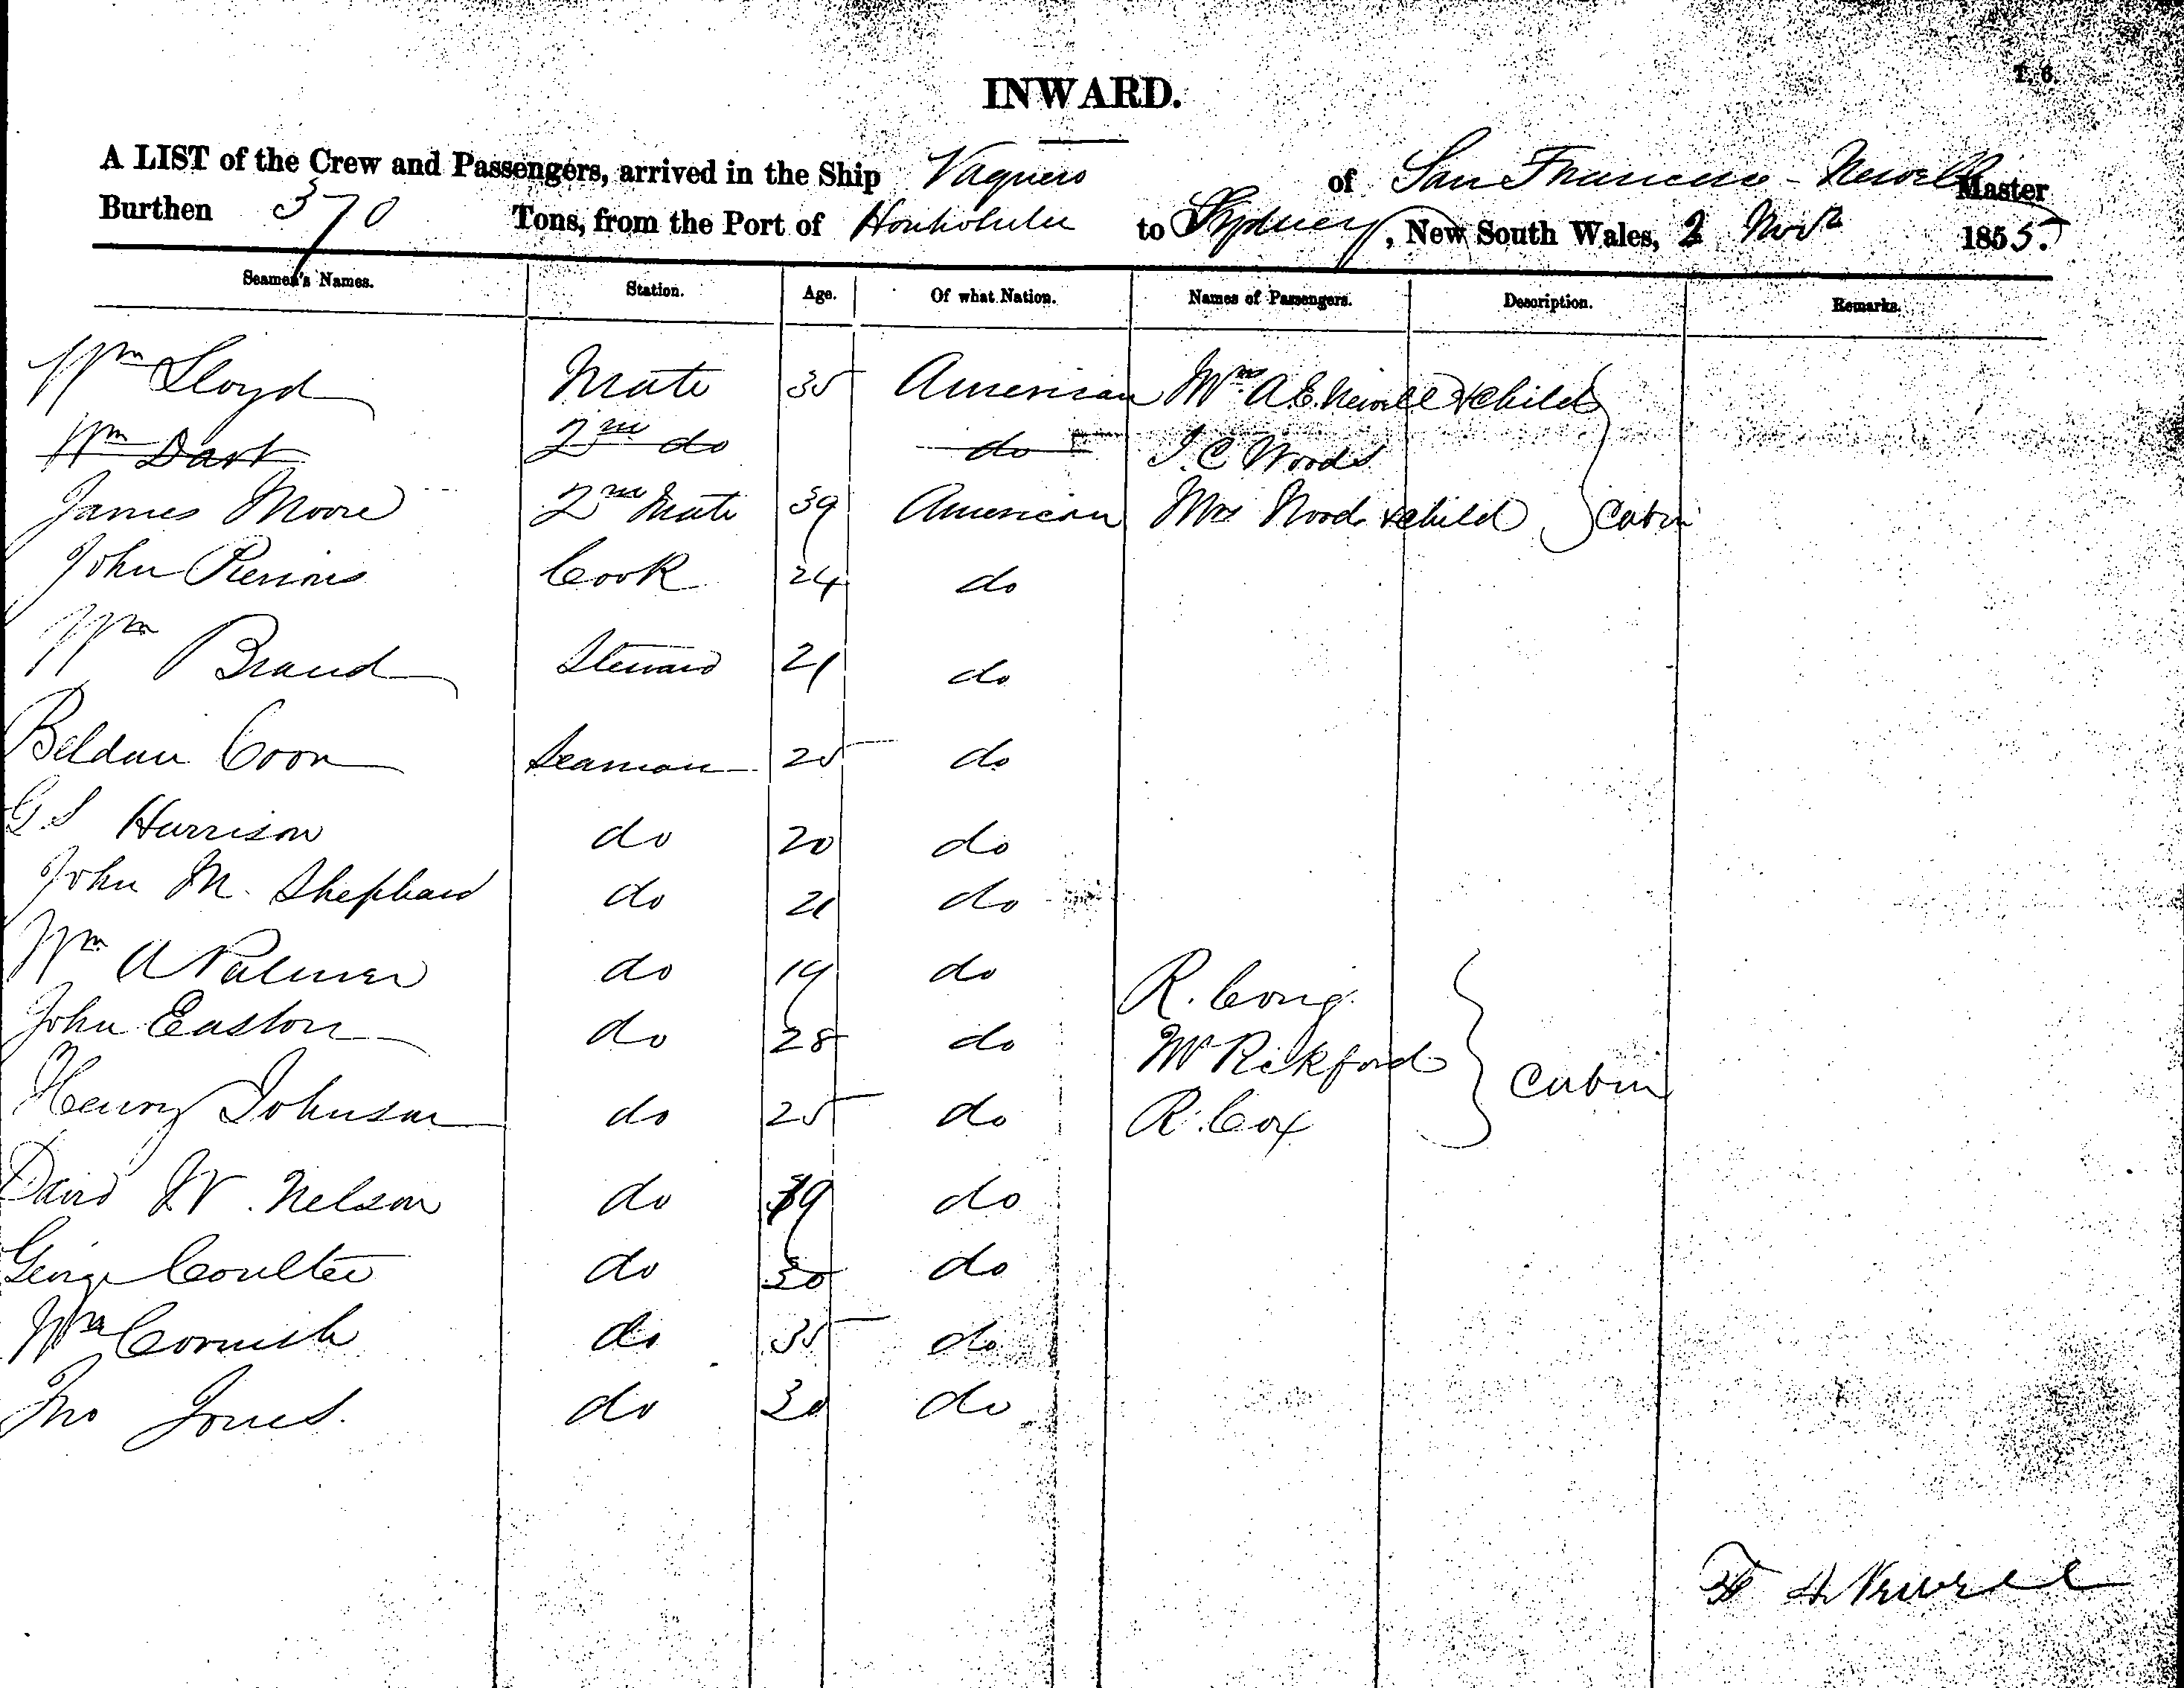 T. 6.
INWARD.
A LIST of the Crew and Passengers, arrived in the Ship Vaquero of San Francisco - Newell Master
Burthen 370 Tons, from the Port of Honholulu to Sydney, New South Wales, 2 Novr 1855.
Seamen's Names. Station. Age. Of what Nation. Names of Passengers. Description. Remarks.
Wm Lloyd Mate 35 American Mrs A.E. Newell & child
Wm Dart 2nd do do J. C Woods
James Moore 2nd Mate 39 American Mrs Wood & child Cabin
John Cook 24 do
Wm Brand Steward 21 do
Beldan Coon Seaman 25 do
G. S Harrison do 20 do
John M. Shephard do 21 do
Wm A Palmer do 19 do R.
John Easton do 28 do Mr Rickford Cabin
Henry Johnson do 25 do R. Cox
David W. Nelson do 39 do
George Coulter do 30 do
Wm Cornish do 35 do
Jno Jones. do 30 do
Newell